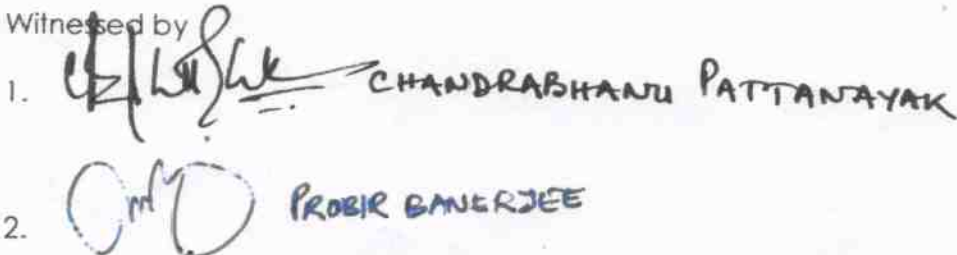 Witnessed by
1. CHANDRABHANU PATTANAYAK
2. PROBIR BANERJEE